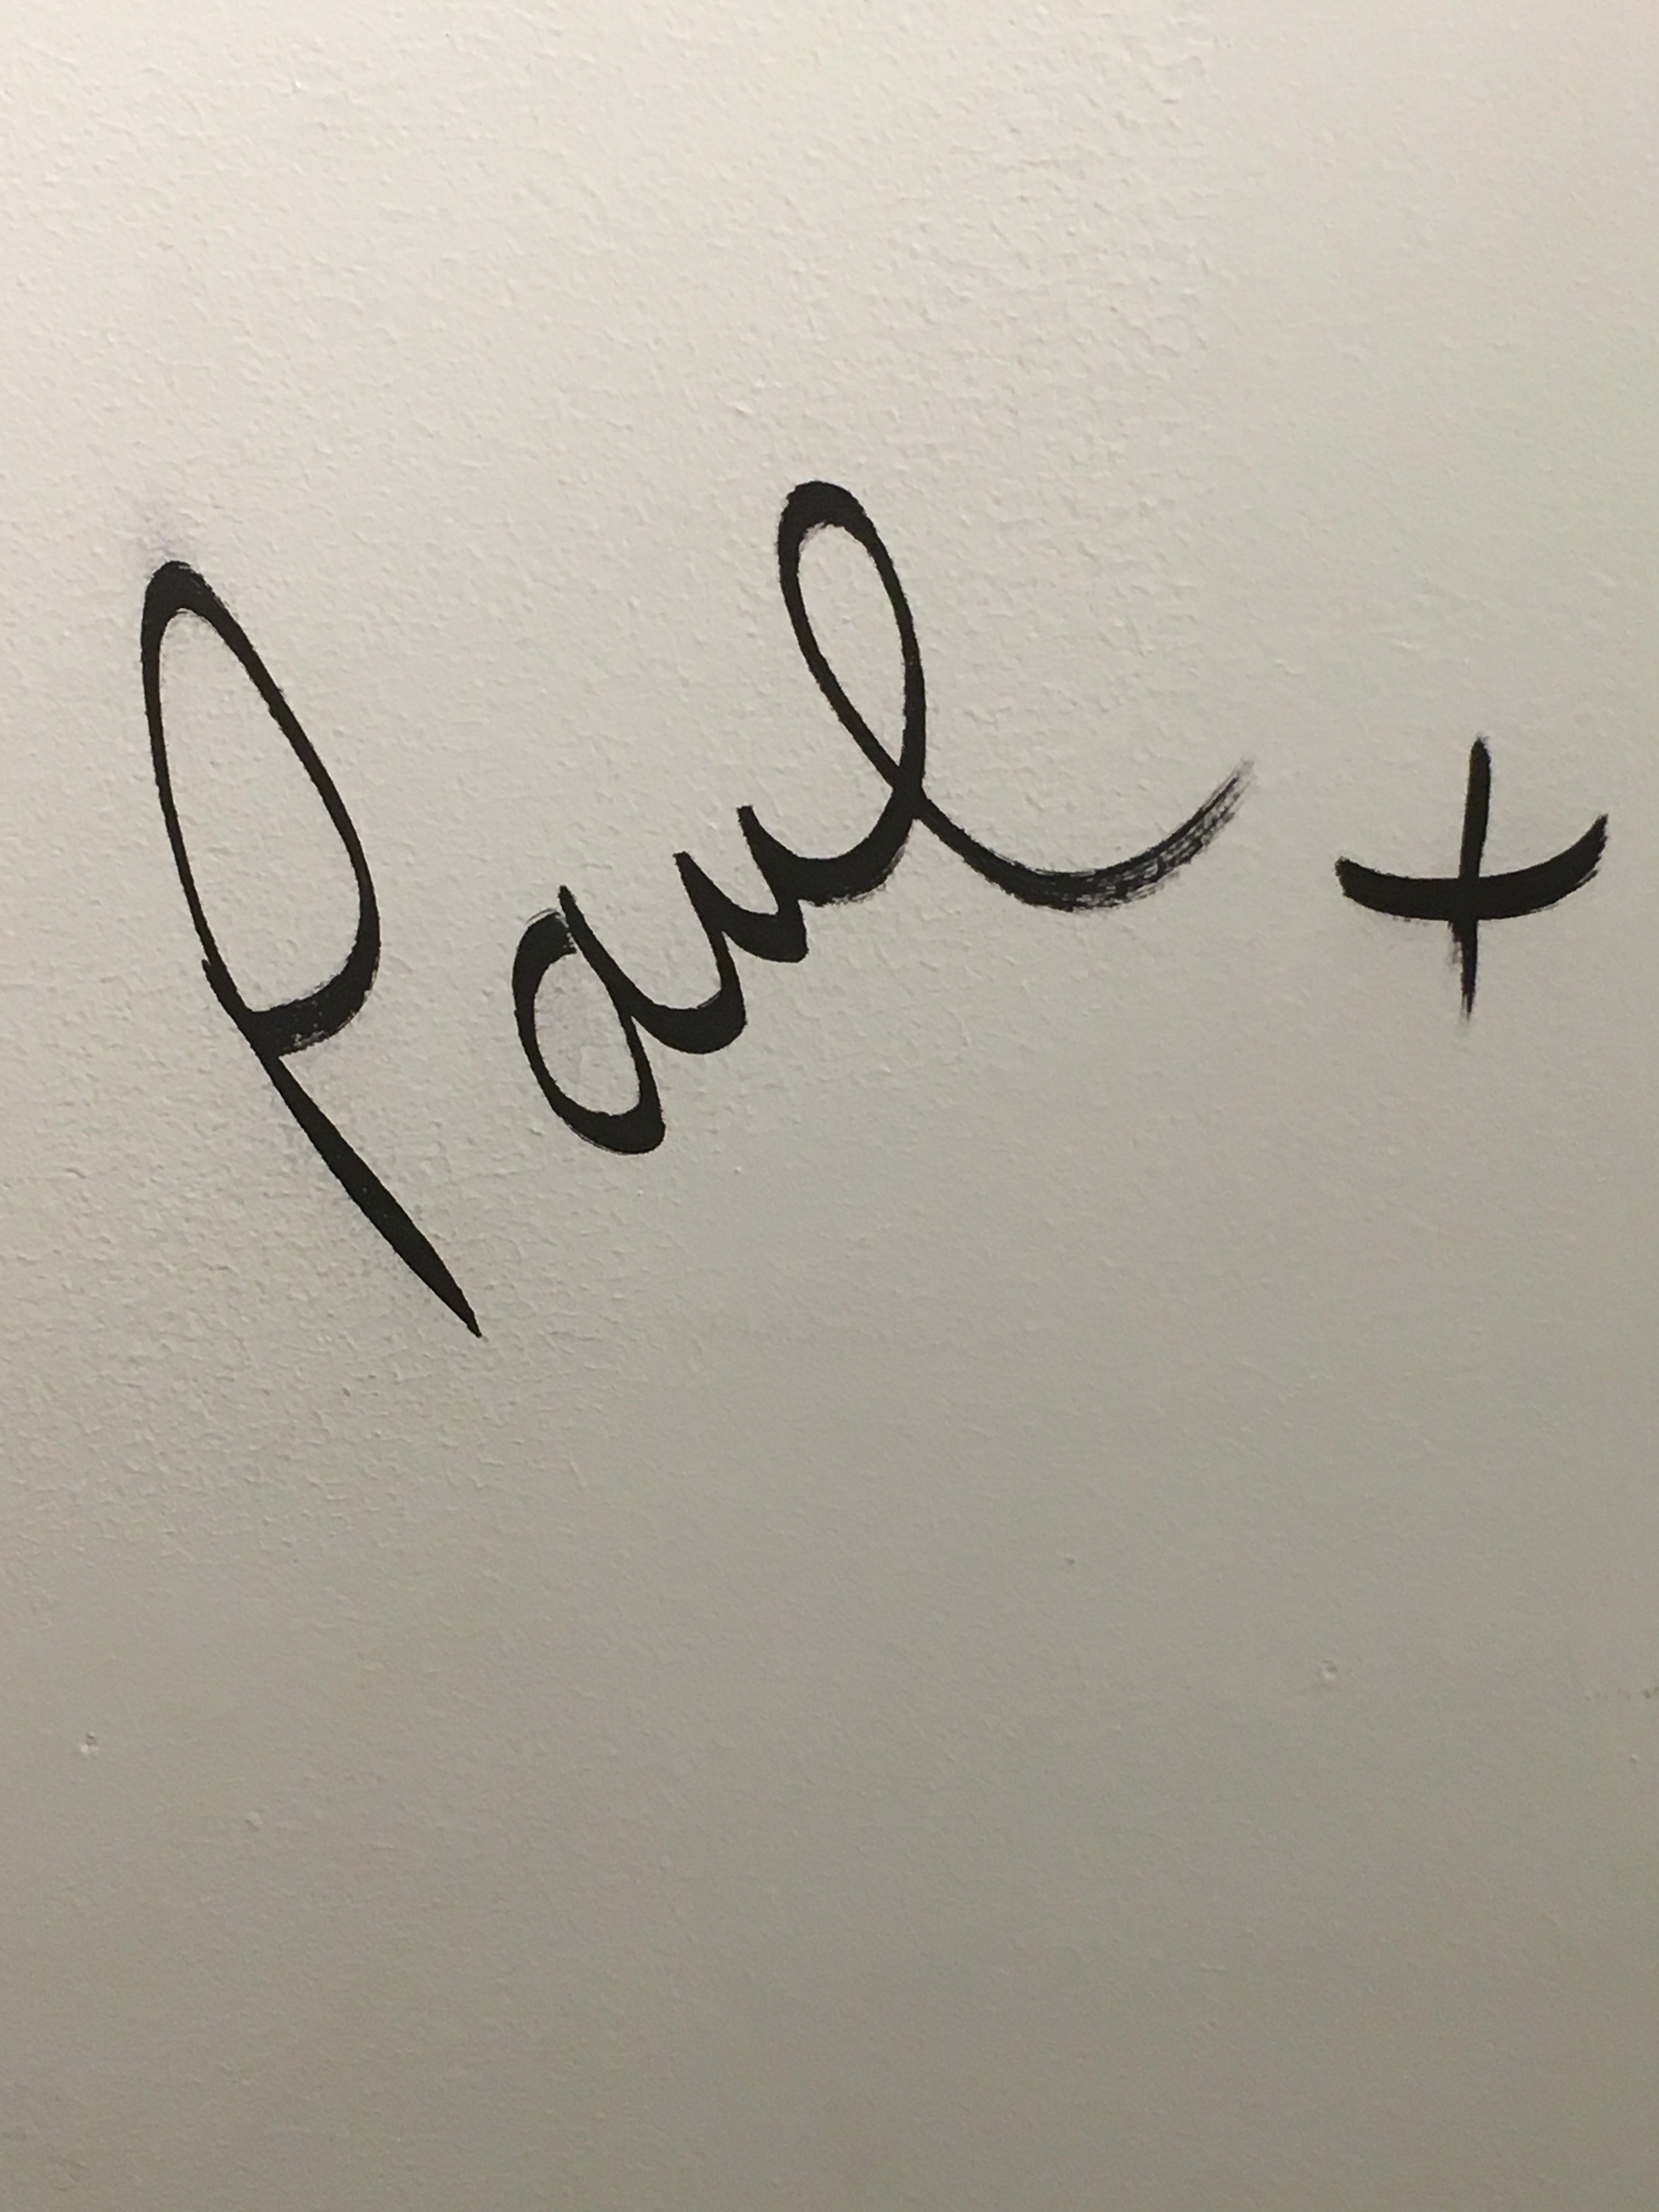 Paul +